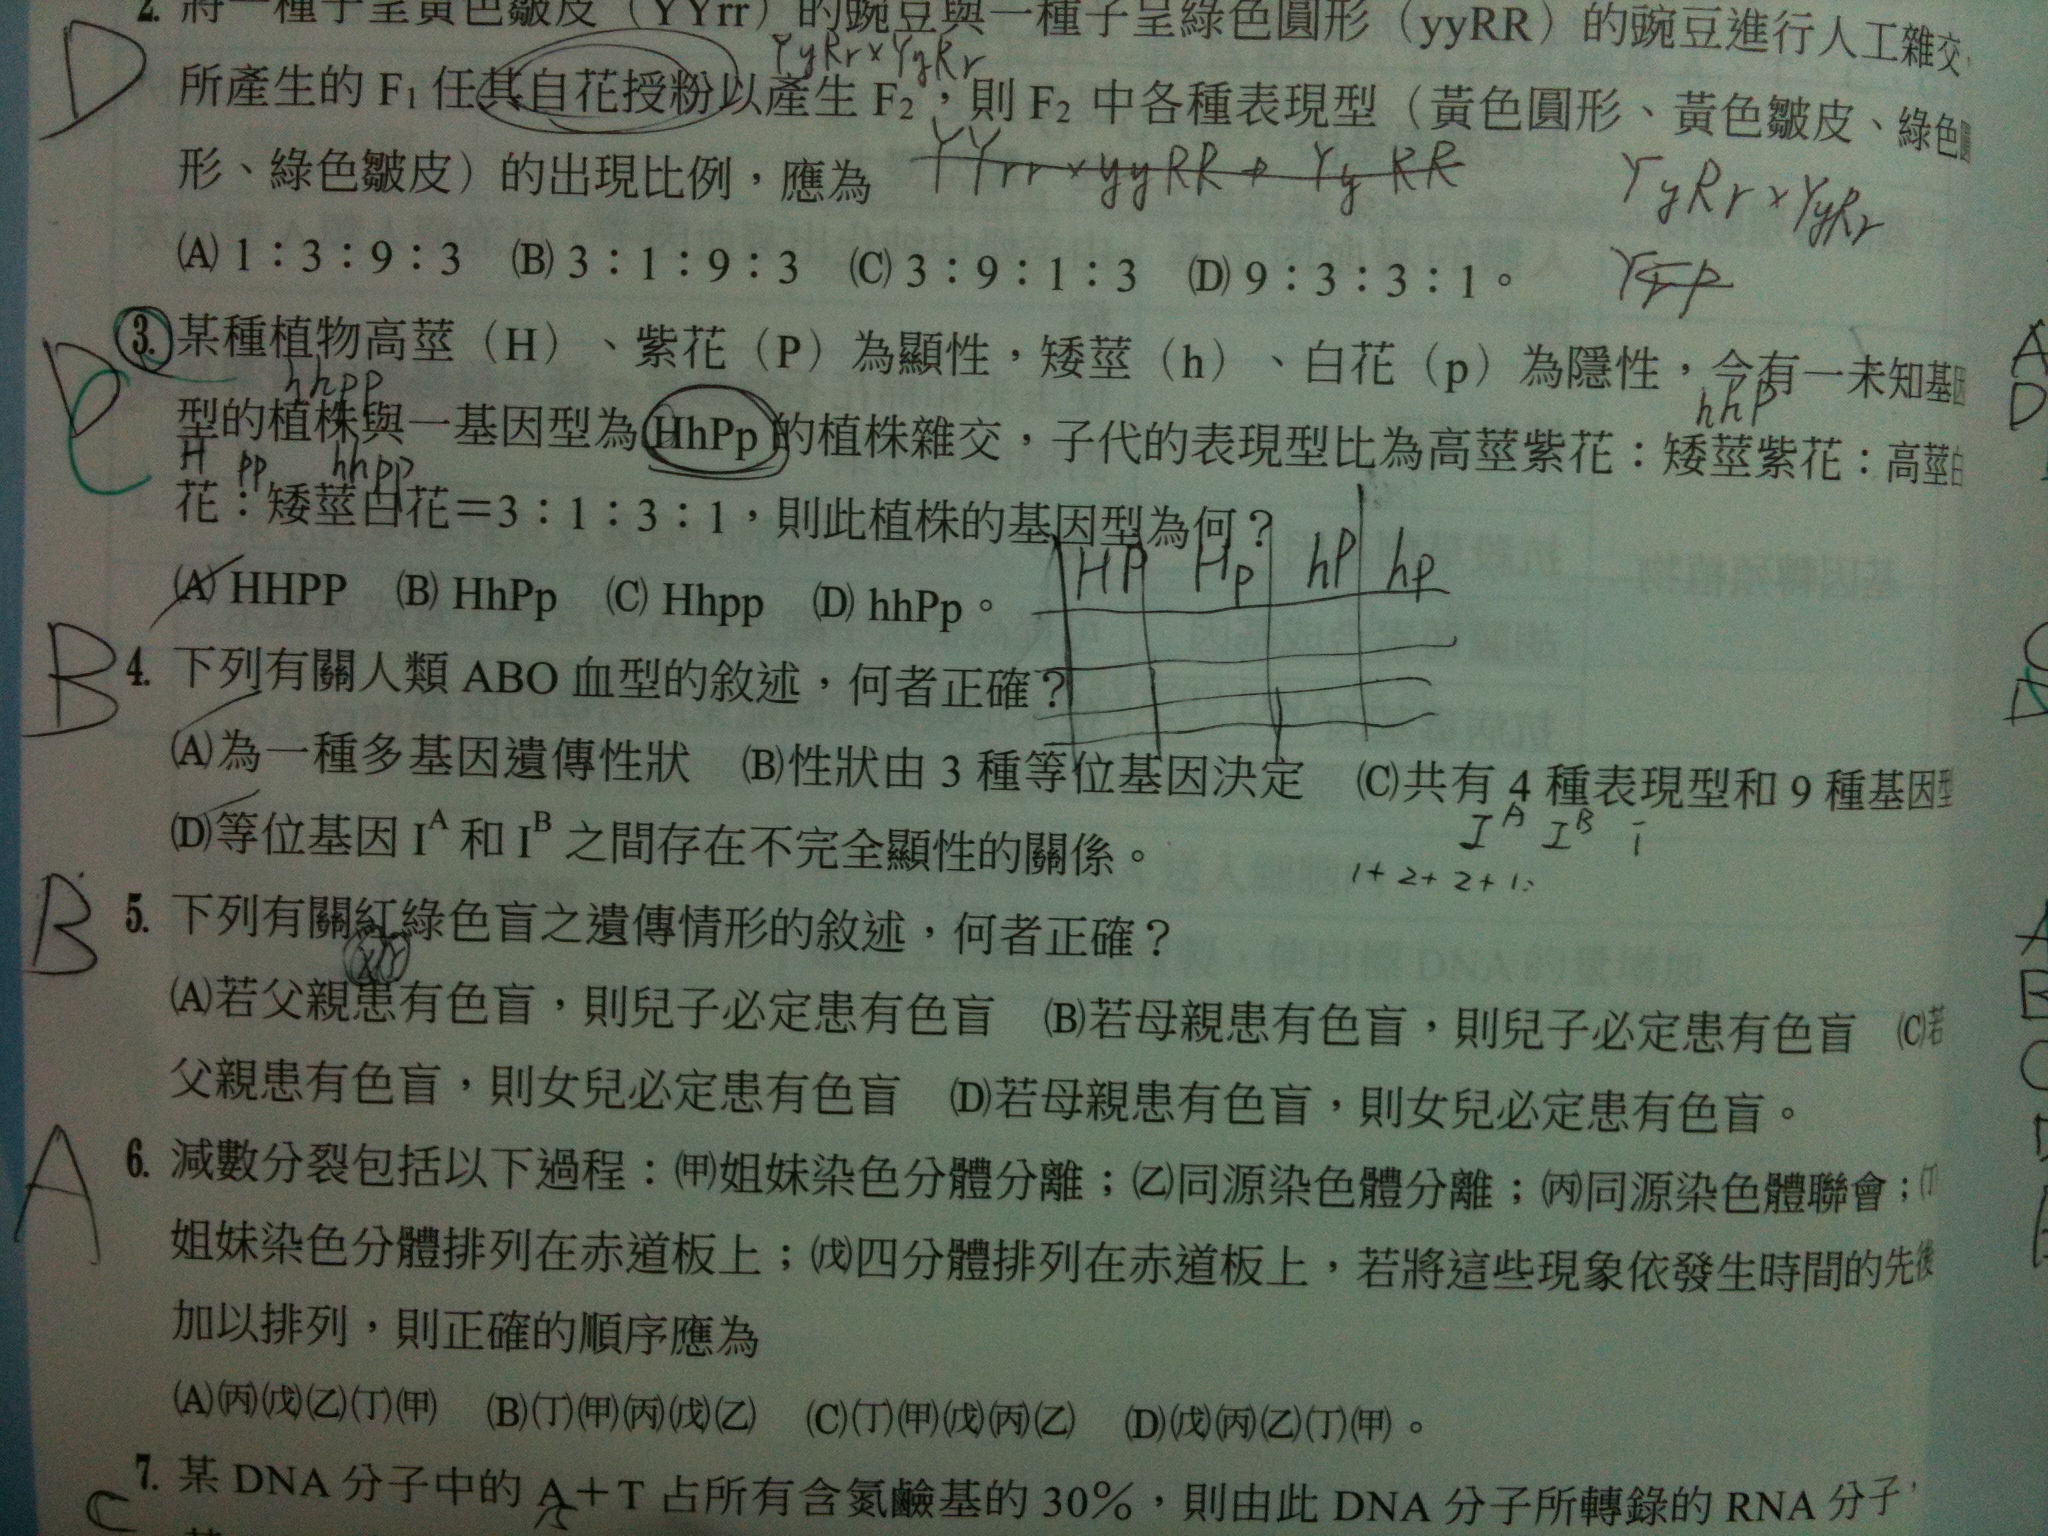 2. 將一種子呈黃色皺皮（YYrr）的豌豆與一種子呈綠色圓形（yyRR）的豌豆進行人工雜交，
YyRr×YyRr
所產生的 F₁ 任其自花授粉以產生 F₂，則 F₂ 中各種表現型（黃色圓形、黃色皺皮、綠色圓
D
形、綠色皺皮）的出現比例，應為
YYrr×yyRR→Yy RR
YyRr×YyRr
(A) 1：3：9：3 (B) 3：1：9：3 (C) 3：9：1：3 (D) 9：3：3：1。
3. 某種植物高莖（H）、紫花（P）為顯性，矮莖（h）、白花（p）為隱性，今有一未知基因
D
C
hhpp
hhP
型的植株與一基因型為 HhPp 的植株雜交，子代的表現型比為高莖紫花：矮莖紫花：高莖白
H pp hhpp
花：矮莖白花＝3：1：3：1，則此植株的基因型為何？
HP Hp hP hp
(A) HHPP (B) HhPp (C) Hhpp (D) hhPp。
B
4. 下列有關人類 ABO 血型的敘述，何者正確？
(A)為一種多基因遺傳性狀 (B)性狀由 3 種等位基因決定 (C)共有 4 種表現型和 9 種基因型
Iᴬ Iᴮ i
(D)等位基因 Iᴬ 和 Iᴮ 之間存在不完全顯性的關係。
1+2+2+1
B
5. 下列有關紅綠色盲之遺傳情形的敘述，何者正確？
(A)若父親患有色盲，則兒子必定患有色盲 (B)若母親患有色盲，則兒子必定患有色盲 (C)若
父親患有色盲，則女兒必定患有色盲 (D)若母親患有色盲，則女兒必定患有色盲。
A
6. 減數分裂包括以下過程：(甲)姐妹染色分體分離；(乙)同源染色體分離；(丙)同源染色體聯會；(丁)
姐妹染色分體排列在赤道板上；(戊)四分體排列在赤道板上，若將這些現象依發生時間的先後
加以排列，則正確的順序應為
(A)(丙)(戊)(乙)(丁)(甲) (B)(丁)(甲)(丙)(戊)(乙) (C)(丁)(甲)(戊)(丙)(乙) (D)(戊)(丙)(乙)(丁)(甲)。
C
7. 某 DNA 分子中的 A＋T 占所有含氮鹼基的 30%，則由此 DNA 分子所轉錄的 RNA 分子，